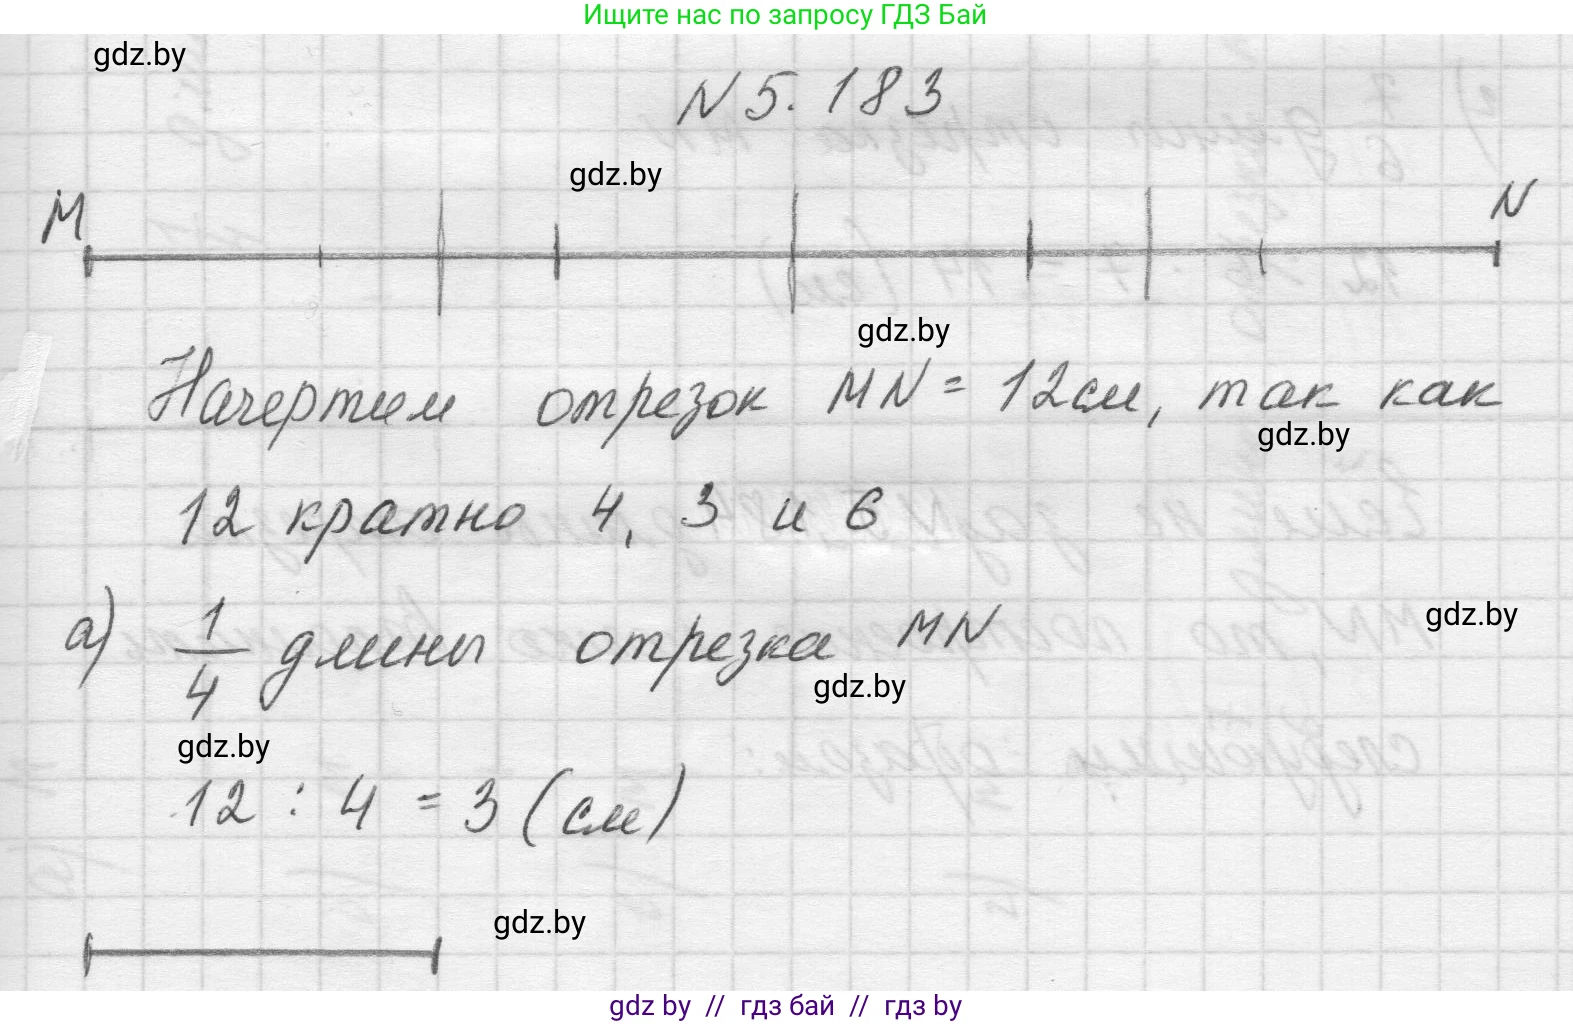 Ищите нас по запросу ГДЗ Бай
gdz.by
N 5. 183
gdz.by
M N
gdz.by
Начертим отрезок MN = 12см, так как
gdz.by
12 кратно 4, 3 и 6
а) 1/4 длины отрезка MN
gdz.by
gdz.by
gdz.by
12 : 4 = 3 (см)
gdz.by
gdz by // гдз бай // гдз by